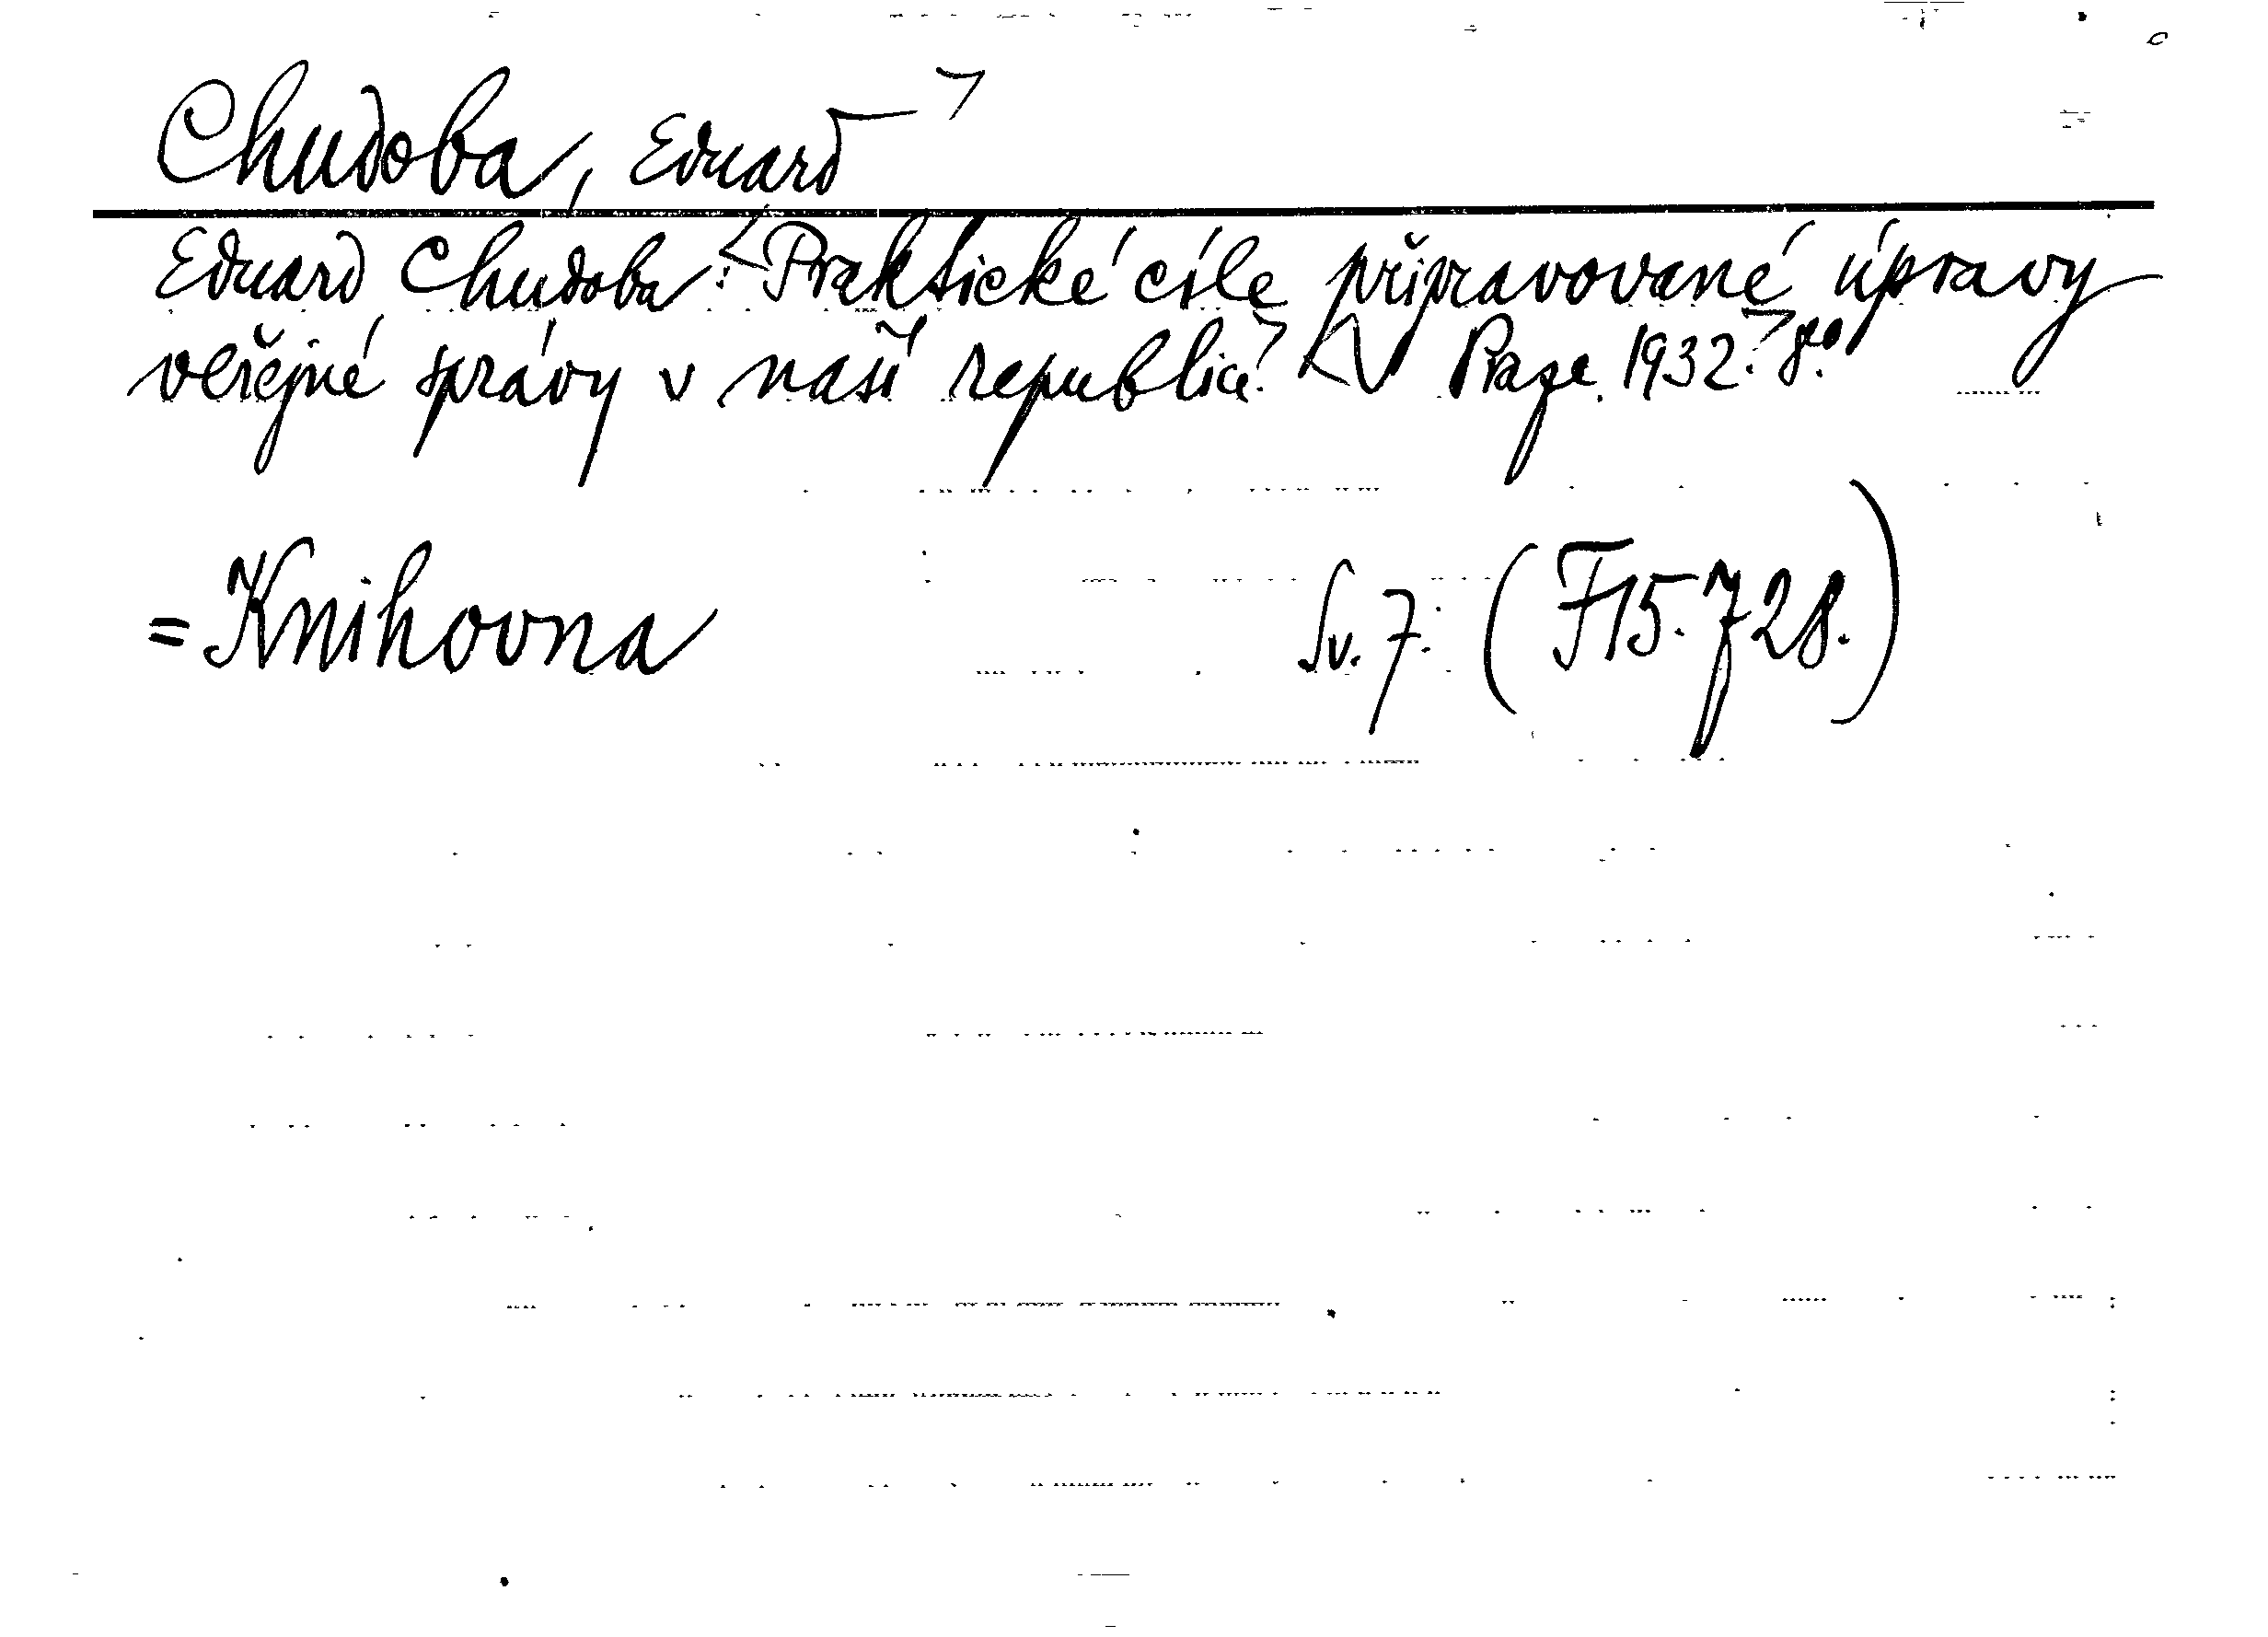 Chudoba, Eduard
Eduard Chudoba: <Praktické cíle připravované úpravy
veřejné správy v naší republice.> <V Praze. 1932.> 8º.
= Knihovna Sv. 7. (F 15.728.)